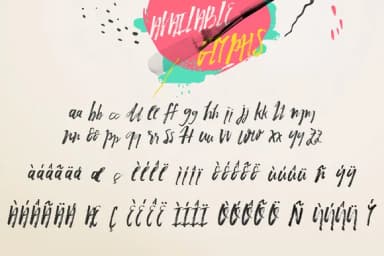 AVAILABLE
GLYPHS
aa bb cc dd ee ff gg hh ii jj kk ll mm
nn oo pp qq rr ss tt uu vv ww xx yy zz
àáâãäå æ ç èéêë ìíîï òóôõö ùúûü ñ ýÿ
ÀÁÂÃÄÅ Æ Ç ÈÉÊË ÌÍÎÏ ÒÓÔÕÖ Ñ ÙÚÛÜ Ý